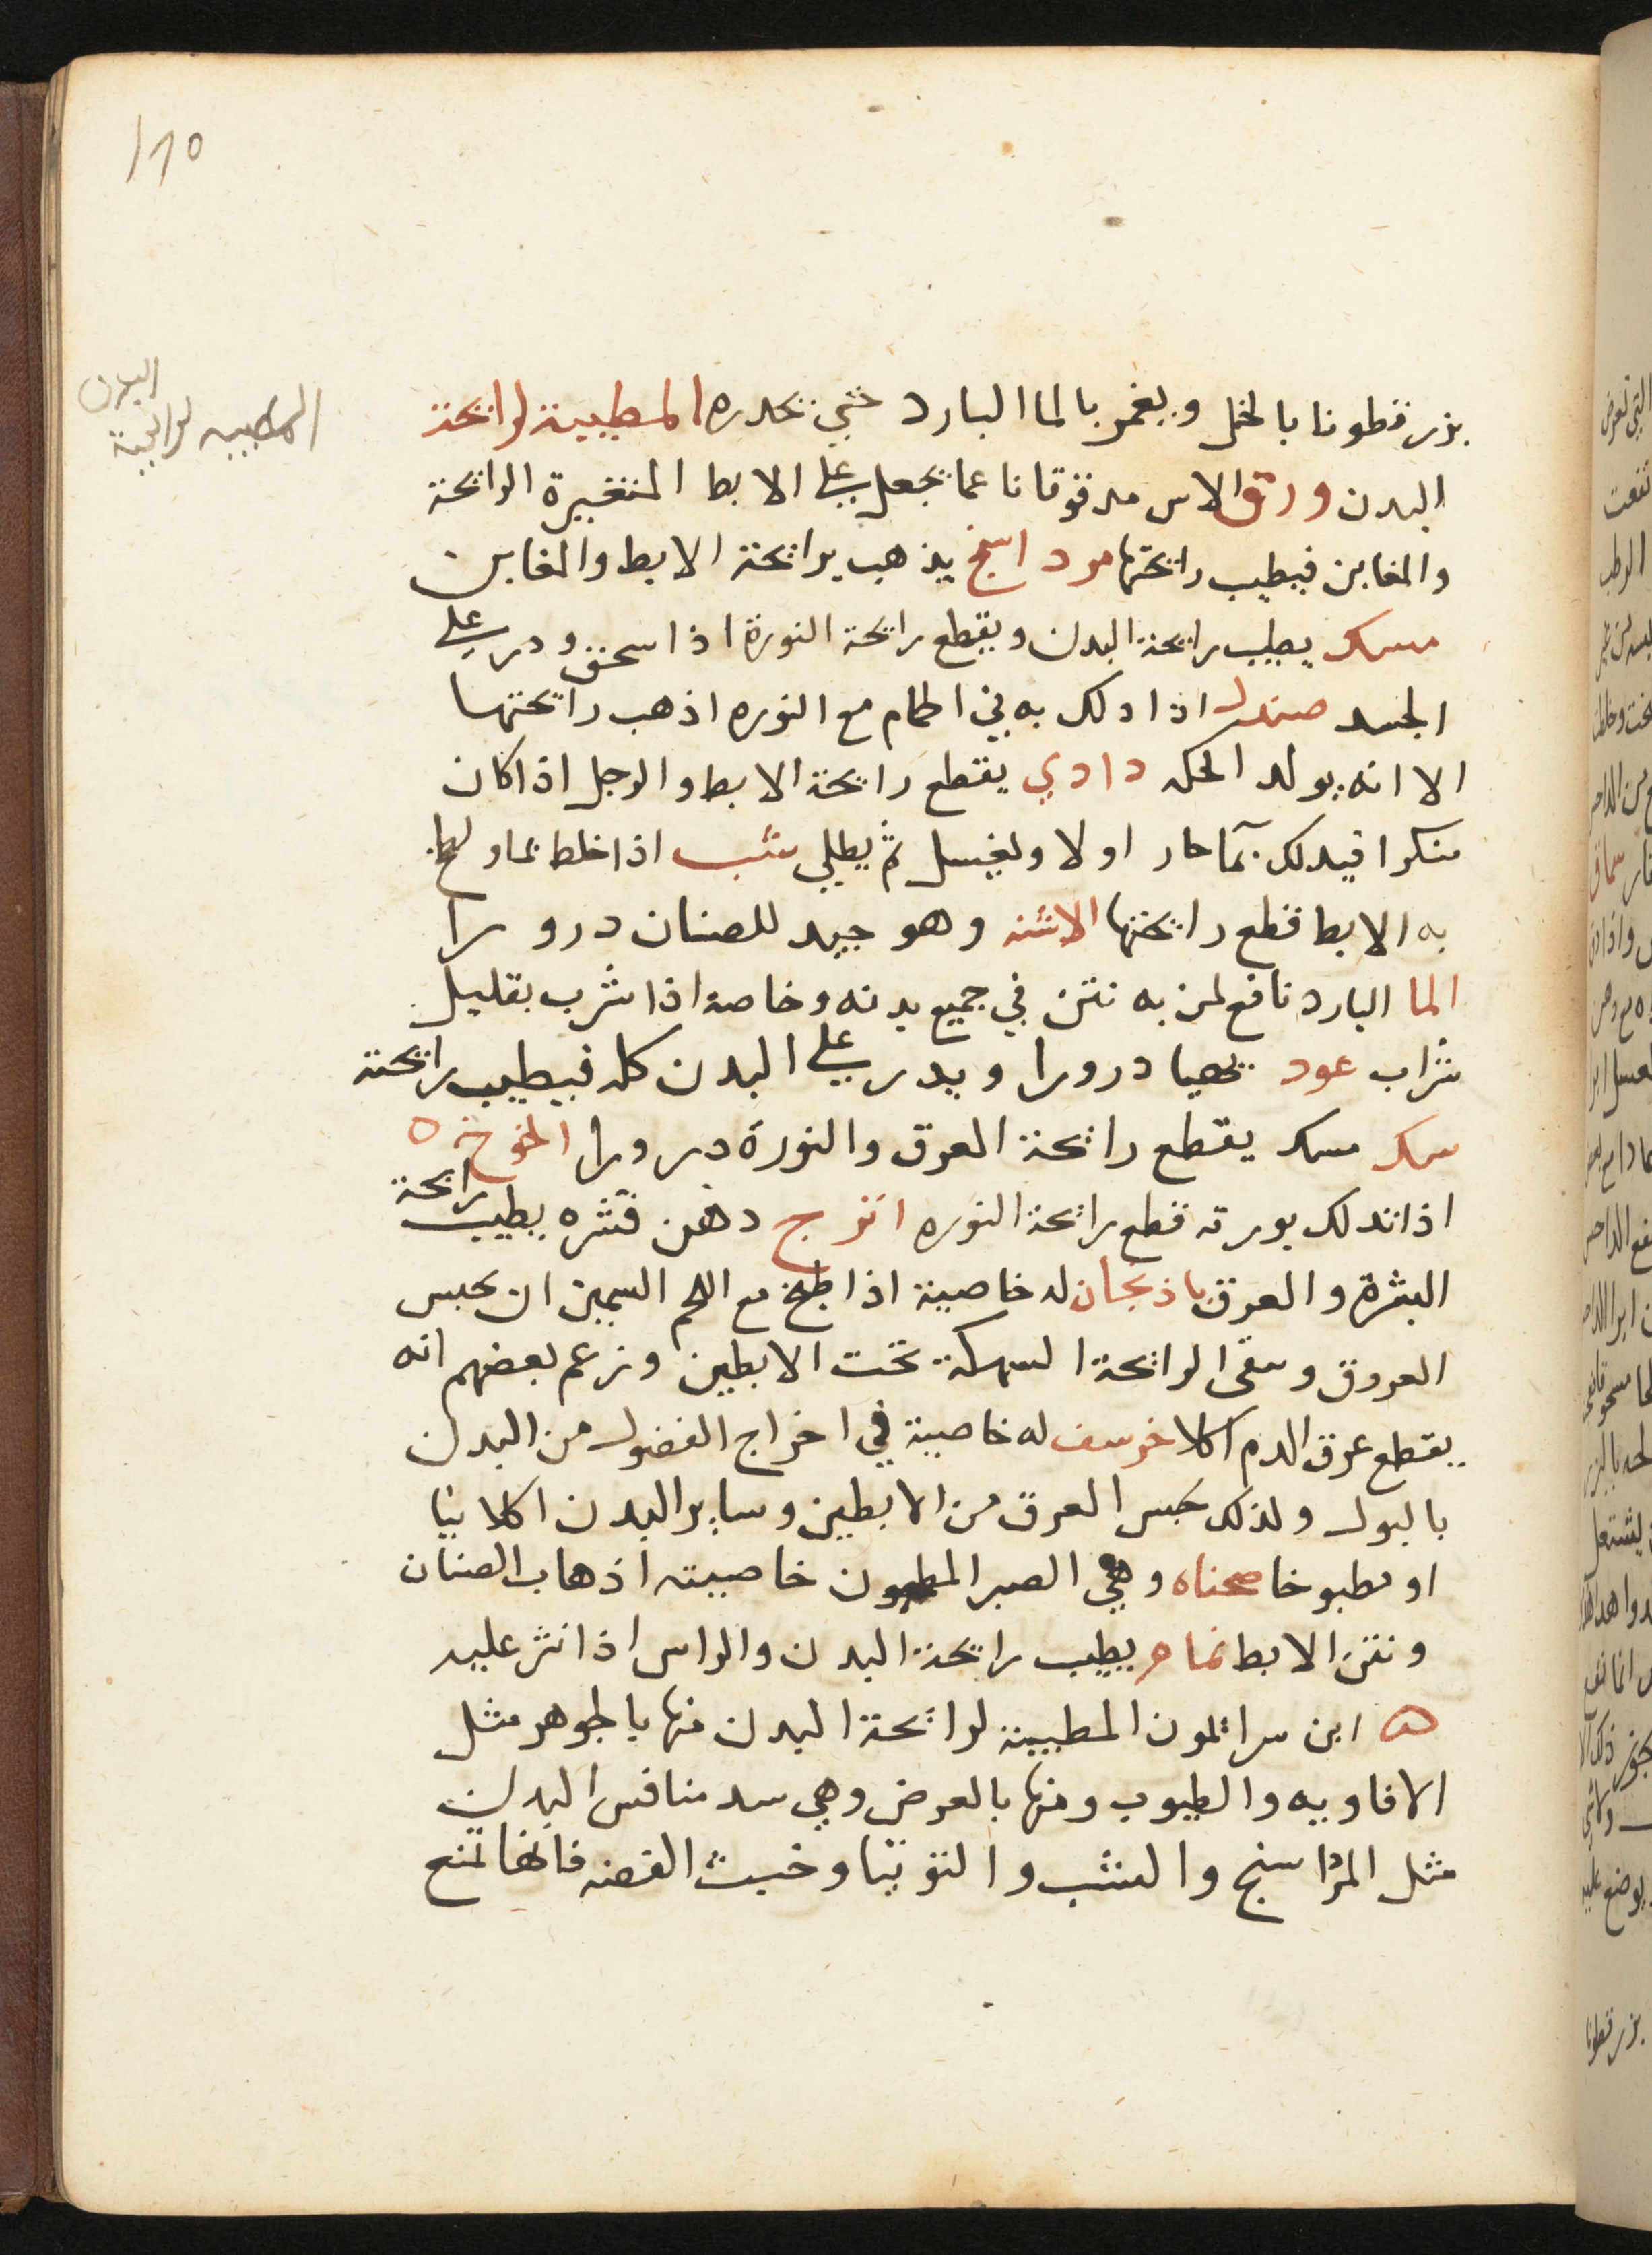 ١١٥
المطيبه لرائحة
البدن
بزر قطونا بالخل ويغمر بالما البارد حتي تخدره المطيبة لرائحة
البدن ورق الاس مدقوقا ناعما يجعل علي الابط المتغيرة الرائحة
والمغابن فيطيب رائحتها مرداسنج يذهب برائحة الابط والمغابن
مسك يطيب رائحة البدن ويقطع رائحة النورة اذا سحق ودر علي
الجسد صندل اذا دلك به في الحمام مع النوره اذهب رائحتها
الا انه يولد الحكه دادي يقطع رائحة الابط والرجل اذا كان
منكرا فيدلك بما حار اولا ويغسل ثم يطلي شب اذا خلط بما ولطخ
به الابط قطع رائحتها الاشنه وهو جيد للصنان درورا
الما البارد نافع لمن به نتن في جميع بدنه وخاصة اذا شرب بقليل
شراب عود يهيا درورا ويدر علي البدن كله فيطيب رائحته
سك مسك يقطع رائحة العرق والنورة درورا الخوخ ه
اذا تدلك بورقه قطع رائحة النوره اترج دهن قشره يطيب رائحة
البشرة والعرق باذنجان له خاصية اذا طبخ مع اللحم السمين ان يحبس
العروق وسقى الرائحة السهكة تحت الابطين وزعم بعضهم انه
يقطع عرق الدم اكلا خرسف له خاصية في اخراج الفضول من البدن
بالبول ولذلك يحبس العرق من الابطين وساير البدن اكلا نيا
او مطبوخا صحناه وهي الصير المطحون خاصيته اذهاب الصنان
ونتن الابط نمام يطيب رائحة البدن والراس اذا نثر عليه
ه ابن سرائلمون المطيبة لرائحة البدن منها بالجوهر مثل
الافاويه والطيوب ومنها بالعرض وهي سد منافس البدن
مثل المرداسنج والشب والتوتيا وخبث الفضه فانها تمنع